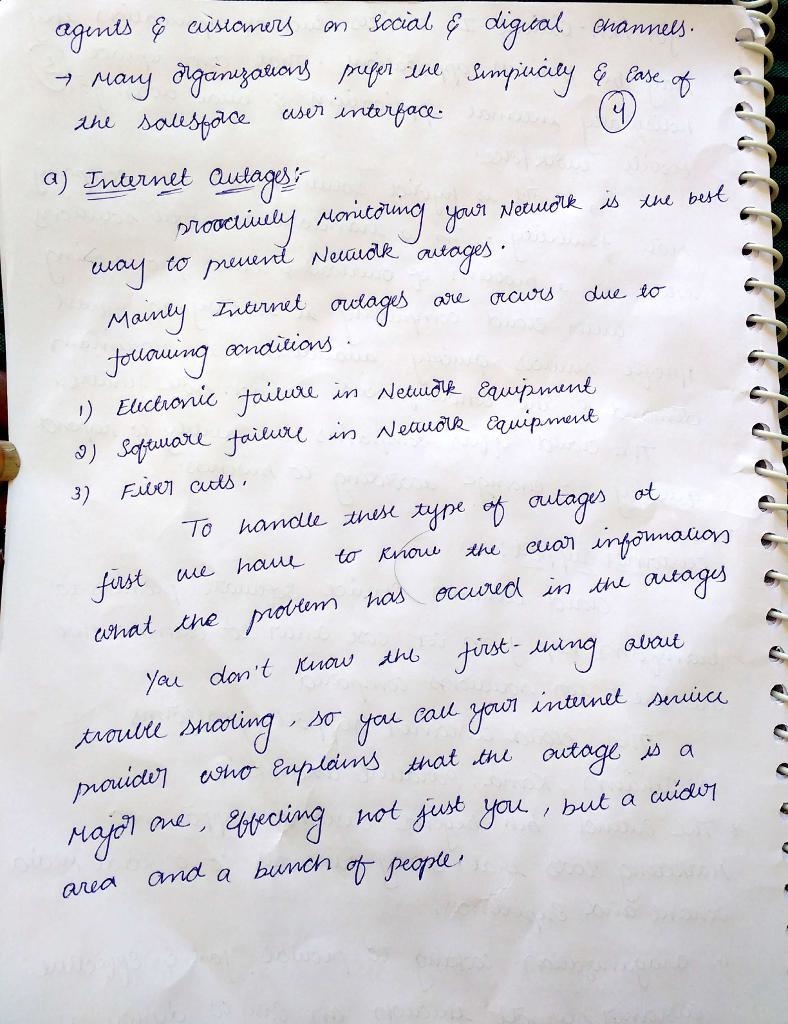 agents & customers on social & digital channels.
→ Many organizations prefer the Simplicity & Ease of
the salesforce user interface.
4
a) Internet Outages:-
proactively Monitoring your Network is the best
way to prevent Network outages.
Mainly Internet outages are occurs due to
following conditions.
1) Electronic failure in Network Equipment
2) Software failure in Network Equipment
3) Fiber cuts.
To handle these type of outages at
first we have to know the clear information
what the problem has occured in the outages
You don't know the first-thing about
trouble shooting, so you call your internet service
provider who Explains that the outage is a
Major one, Effecting not just you, but a wider
area and a bunch of people.